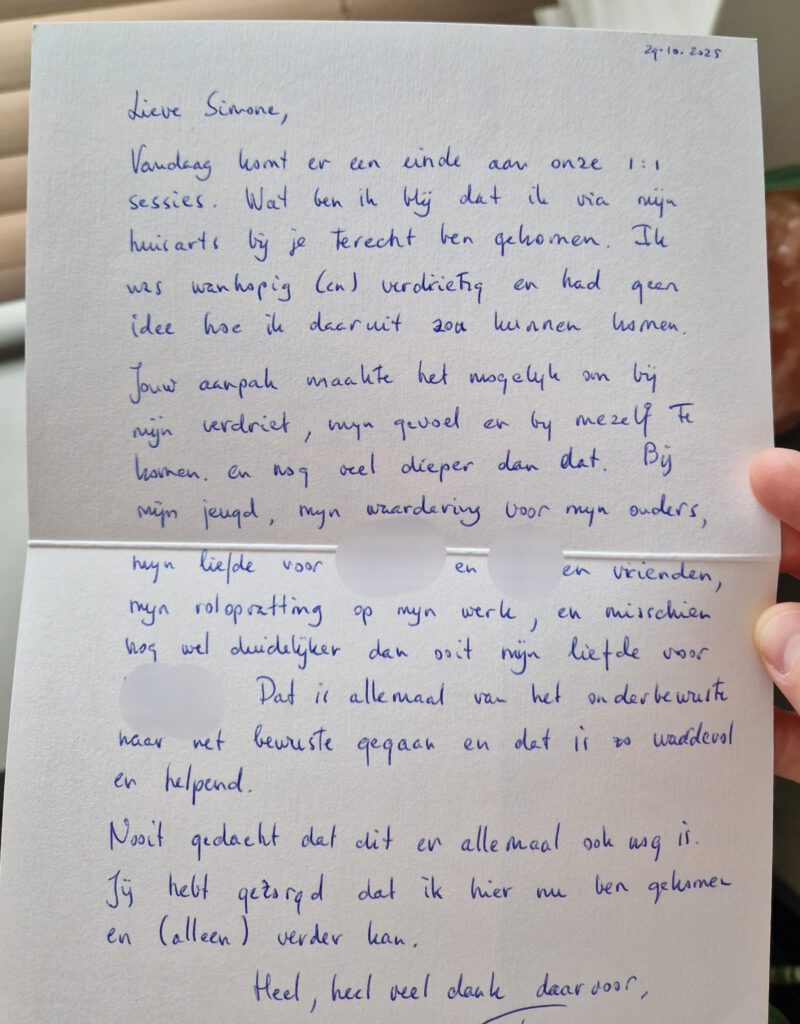 29.10.2025
Lieve Simone,
Vandaag komt er een einde aan onze 1:1
sessies. Wat ben ik blij dat ik via mijn
huisarts bij je terecht ben gekomen. Ik
was wanhopig (en) verdrietig en had geen
idee hoe ik daaruit zou kunnen komen.
Jouw aanpak maakte het mogelijk om bij
mijn verdriet, mijn gevoel en bij mezelf te
komen. en nog veel dieper dan dat. Bij
mijn jeugd, mijn waardering voor mijn ouders,
mijn liefde voor en en vrienden,
mijn rolopvatting op mijn werk, en misschien
nog wel duidelijker dan ooit mijn liefde voor
Dat is allemaal van het onderbewuste
naar het bewuste gegaan en dat is zo waardevol
en helpend.
Nooit gedacht dat dit er allemaal ook nog is.
Jij hebt gezorgd dat ik hier nu ben gekomen
en (alleen) verder kan.
Heel, heel veel dank daarvoor,